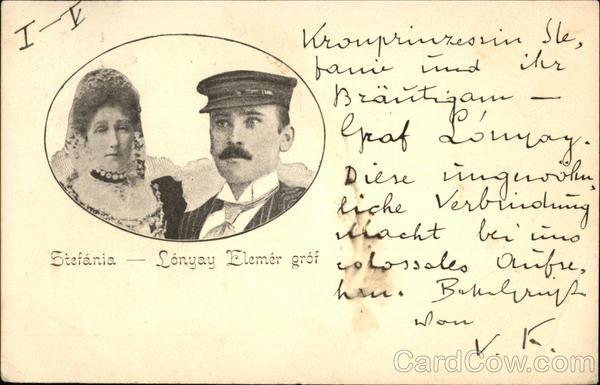 I — V
Kronprinzessin Ste,
fanie und ihr
Bräutigam —
Graf Lónyay.
Diese ungewöhn,
liche Verbindung
macht bei uns
colossales Aufse,
hen.
von
V. K.
Stefánia — Lónyay Elemér gróf
CardCow.com